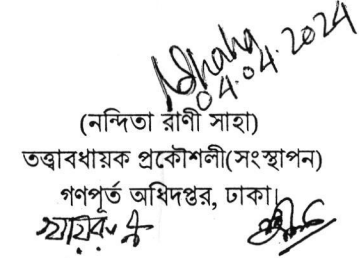 04.04.2024
(নন্দিতা রাণী সাহা)
তত্ত্বাবধায়ক প্রকৌশলী(সংস্থাপন)
গণপূর্ত অধিদপ্তর, ঢাকা।